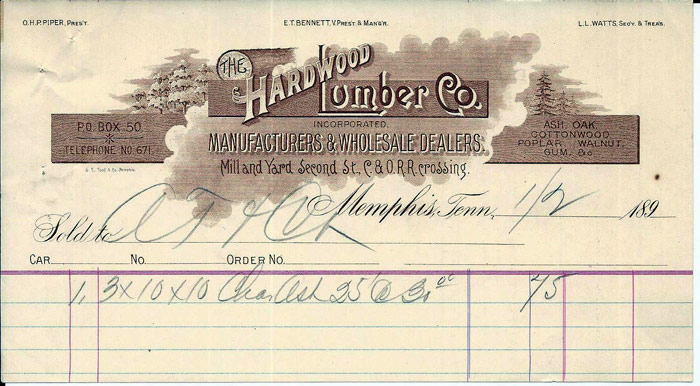 O.H.P. PIPER, PRES'T.
E.T. BENNETT, V. PREST. & MAN'G'R.
L.L. WATTS, SEC'Y. & TREAS.
THE HARDWOOD
Lumber Co.
INCORPORATED.
MANUFACTURERS & WHOLESALE DEALERS.
Mill and Yard Second St., C & O.R.R. crossing.
P.O. BOX. 50.
TELEPHONE NO. 671.
ASH, OAK,
COTTONWOOD
POPLAR, WALNUT,
GUM, &c
Memphis, Tenn. 1/2 189
Sold to
CAR. No. ORDER No.
1, 3x10x10 Ash 25' @ 30 00 75